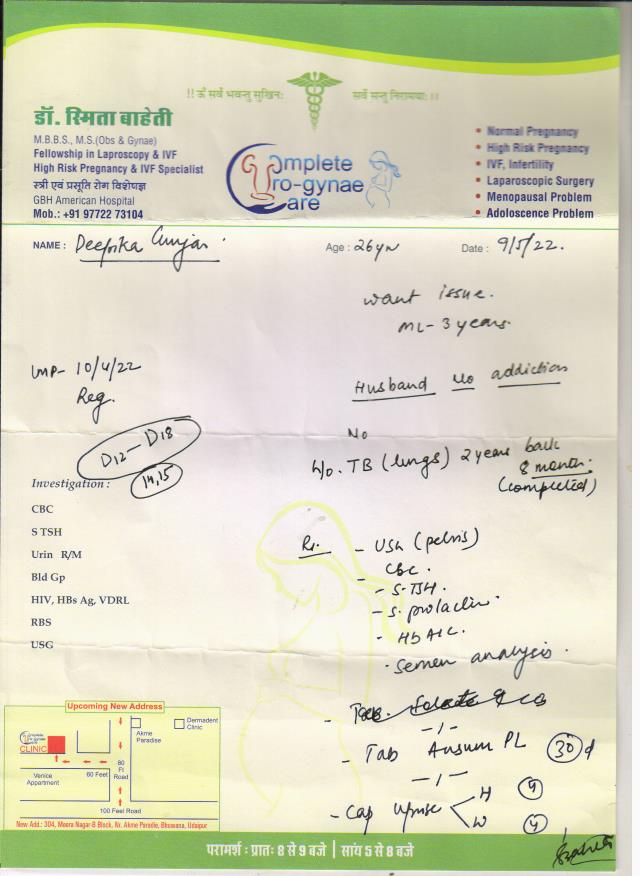 !! ॐ सर्वे भवन्तु सुखिनः सर्वे सन्तु निरामयाः !!
डॉ. स्मिता बाहेती
M.B.B.S., M.S.(Obs & Gynae)
Fellowship in Laproscopy & IVF
High Risk Pregnancy & IVF Specialist
स्त्री एवं प्रसूति रोग विशेषज्ञ
GBH American Hospital
Mob.: +91 97722 73104
Complete
Uro-gynae
Care
• Normal Pregnancy
• High Risk Pregnancy
• IVF, Infertility
• Laparoscopic Surgery
• Menopausal Problem
• Adoloscence Problem
NAME : Deepika Age : 26 yr Date : 9/5/22.
want issue.
ML - 3 years.
LMP- 10/4/22
Reg.
Husband No addiction
D12 – D18
14,15
No
h/o. TB (lungs) 2 years back
8 month.
(completed)
Investigation :
CBC
S TSH
Urin R/M
Bld Gp
HIV, HBs Ag, VDRL
RBS
USG
Rx. - USG (pelvis)
- CBC.
- S. TSH.
- S. prolactin.
- HbA1C.
- Semen analysis.
-1-
- Tab PL 30 d
-1-
- Cap H
W
Upcoming New Address
Complete Uro-gynae Care
CLINIC
Akme Paradise
Dermadent Clinic
Venice Appartment
60 Feet
80 Ft Road
100 Feel Road
New Add.: 304, Meera Nagar-B Block, Nr. Akme Paradie, Bhuwana, Udaipur
परामर्श : प्रातः 8 से 9 बजे | सांय 5 से 8 बजे